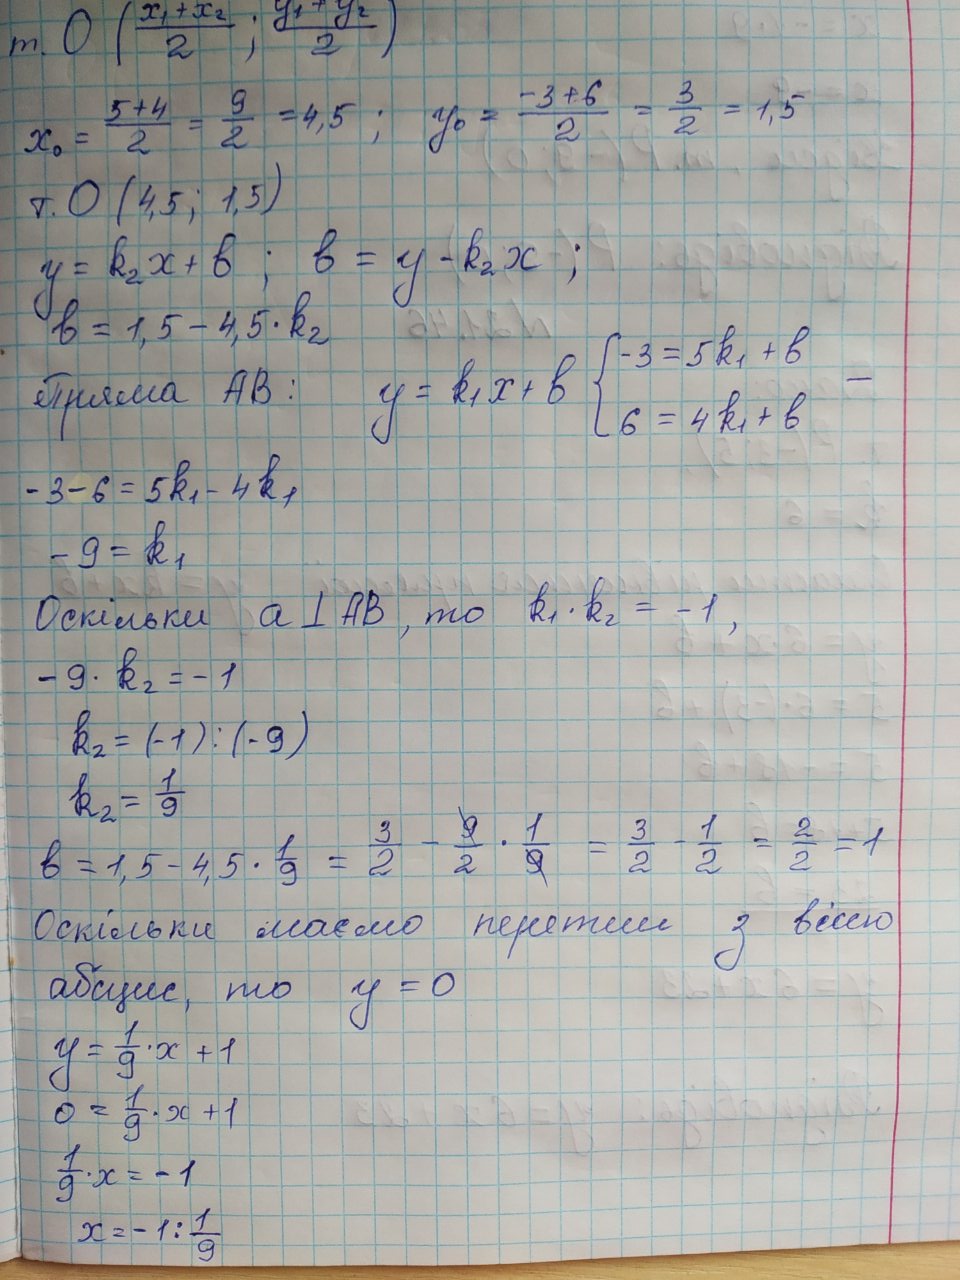 т. O ( (x₁+x₂)/2 ; (y₁+y₂)/2 )
x₀ = (5+4)/2 = 9/2 = 4,5 ; y₀ = (-3+6)/2 = 3/2 = 1,5
т. O (4,5; 1,5)
y = k₂x + в ; в = y - k₂x ;
в = 1,5 - 4,5 · k₂
Пряма AB: y = k₁x + в { -3 = 5k₁ + в
6 = 4k₁ + в −
-3-6 = 5k₁ - 4k₁
-9 = k₁
Оскільки a ⊥ AB, то k₁ · k₂ = -1,
-9 · k₂ = -1
k₂ = (-1) : (-9)
k₂ = 1/9
в = 1,5 - 4,5 · 1/9 = 3/2 - 9/2 · 1/9 = 3/2 - 1/2 = 2/2 = 1
Оскільки маємо перетин з віссю
абсцис, то y = 0
y = 1/9 · x + 1
0 = 1/9 · x + 1
1/9 · x = -1
x = -1 : 1/9